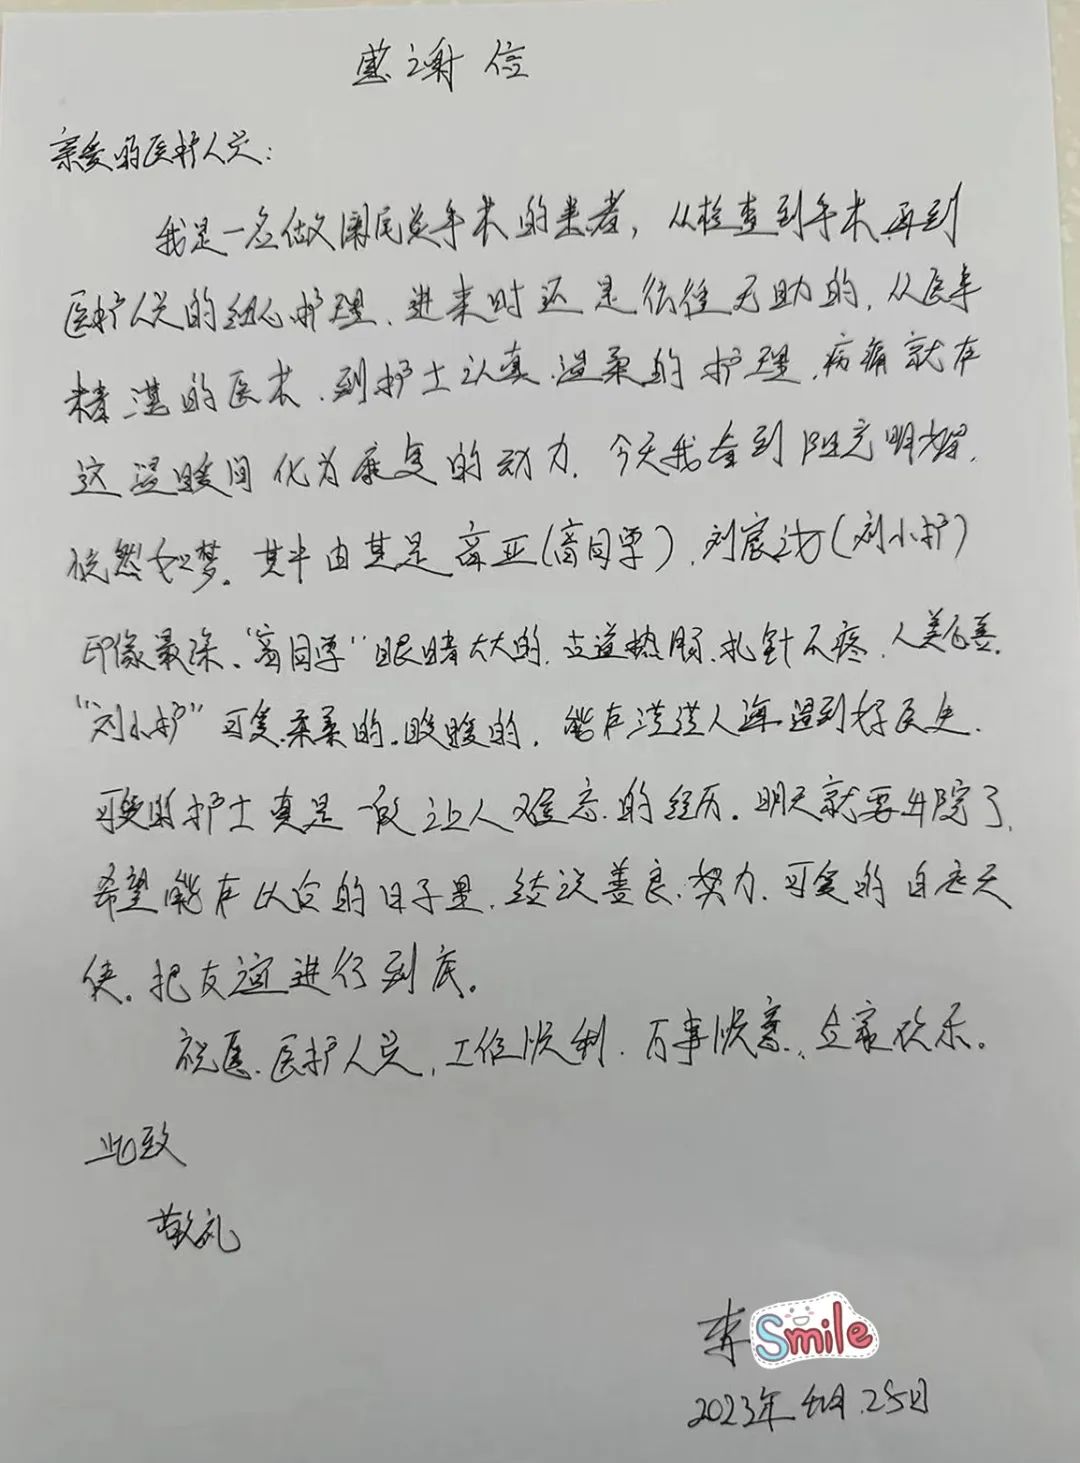 感谢信
亲爱的医护人员:
我是一名做阑尾炎手术的患者,从检查到手术再到
医护人员的细心护理、进来时还是彷徨无助的,从医生
精湛的医术、到护士认真、温柔的护理,病痛就在
这温暖间化为康复的动力。今天我看到阳光明媚,
恍然如梦。其中由其是高亚(高同学)、刘宸(刘小护)
印像最深、“高同学”眼睛大大的,古道热肠、扎针不疼,人美心善。
“刘小护”可爱.柔柔的.暖暖的,能在茫茫人海遇到好医生、
可爱的护士真是一段让人难忘的经历。明天就要出院了,
希望能在以后的日子里,结识善良、努力、可爱的白衣天
使。把友谊进行到底。
祝愿、医护人员,工作顺利、万事顺意、全家欢乐。
此致
敬礼
李
Smile
2023年4月25日